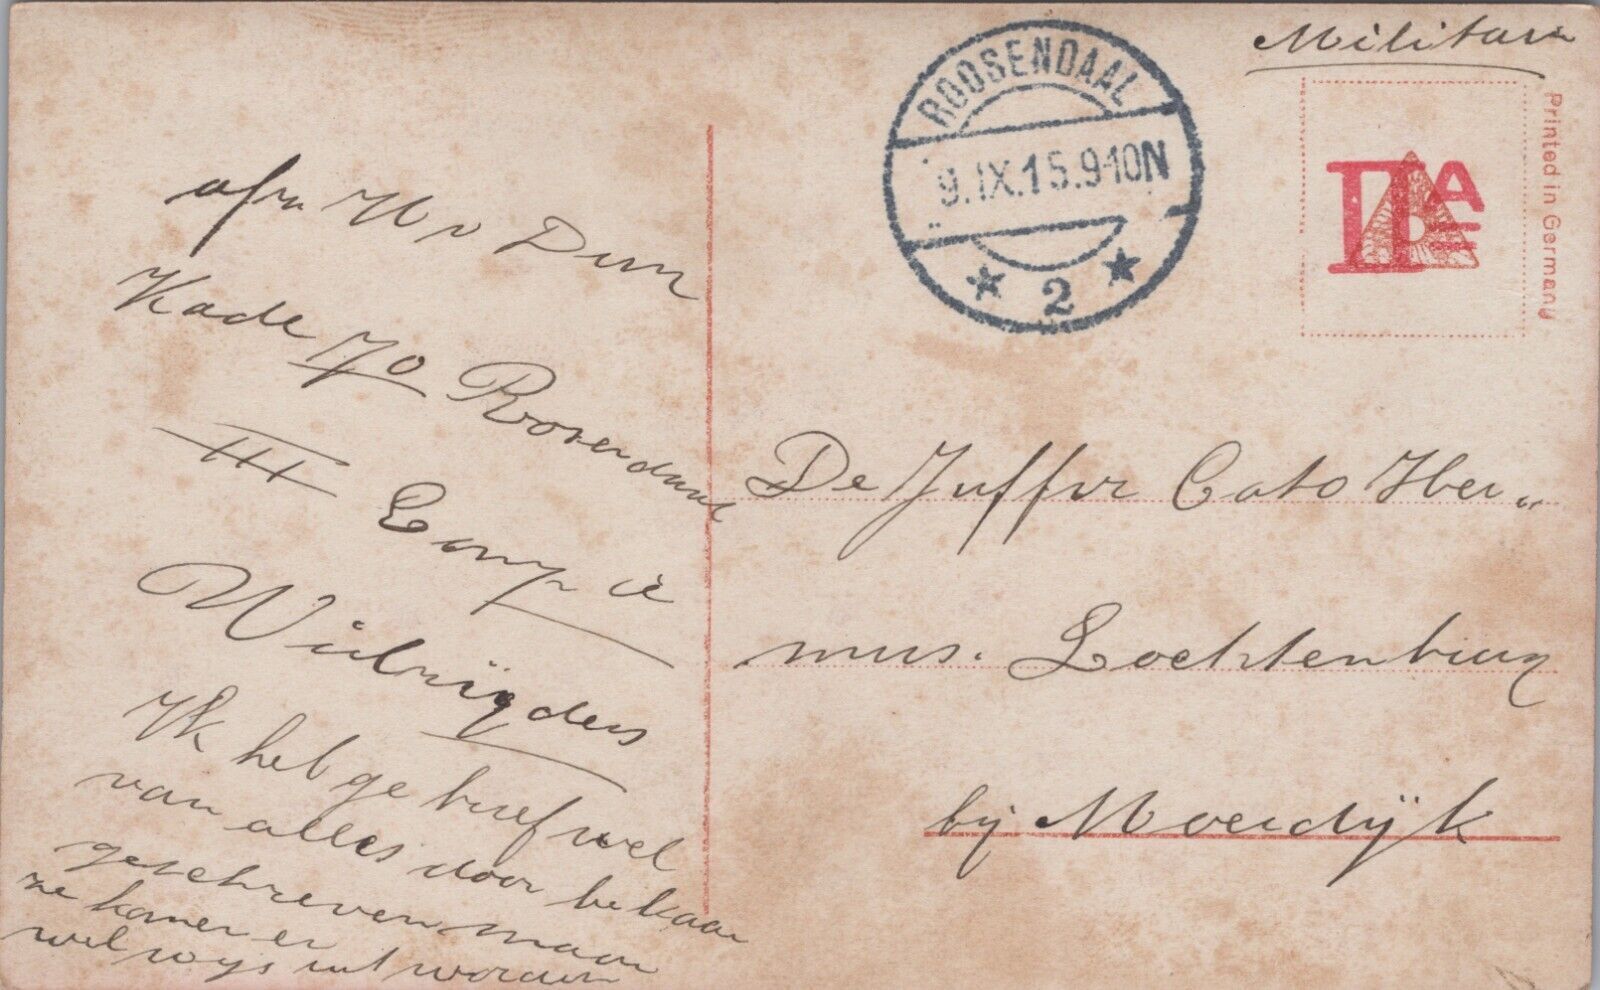 Militair
ROOSENDAAL
9.IX.15.9-10N
2
Printed in Germany
afn H v Dun
Kade 70 Roosendaal
III Comp ie
Wielrijders
Ik heb ge brief wel
van alles door be kaar
geschreven maar
ze komen er
wel wys uit worden
De Juffvr Cato Her„
mus. Lochtenburg
bij Moerdijk